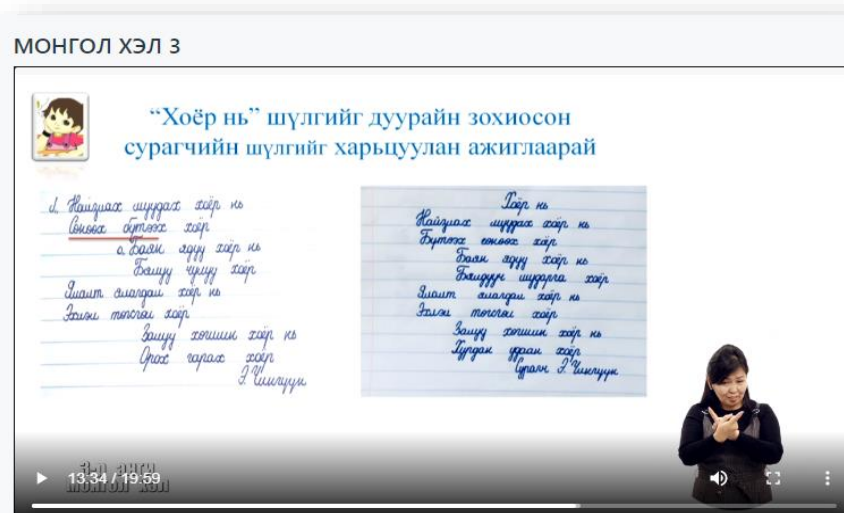 МОНГОЛ ХЭЛ 3
“Хоёр нь” шүлгийг дуурайн зохиосон
сурагчийн шүлгийг харьцуулан ажиглаарай
Найзлах муудах хоёр нь
Сөнөөх бүтээх хоёр
Баян ядуу хоёр нь
хоёр
Ялалт ялагдал хоёр нь
Эхлэл төгсгөл хоёр
Залуу хөгшин хоёр нь
Орох гарах хоёр
Э. Чингүүн
Хоёр нь
Найзлах муудах хоёр нь
Бүтээх сөнөөх хоёр
Баян ядуу хоёр нь
Бялдууч шударга хоёр
Ялалт ялагдал хоёр нь
Эхлэл төгсгөл хоёр
Залуу хөгшин хоёр нь
Хурдан удаан хоёр
Сурагч Э. Чингүүн
3-р анги
Монгол хэл
13:34 / 19:59